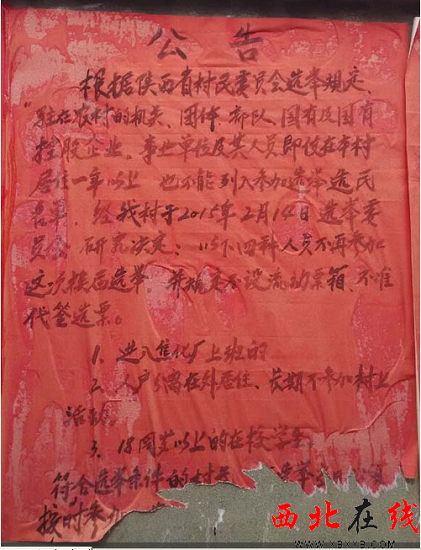 公告
根据陕西省村民委员会选举规定，
“驻在农村的机关、团体、部队、国有及国有
控股企业、事业单位及其人员即使在本村
居住一年以上，也不能列入参加选举选民
名单，经我村于2015年2月14日选举委
员会研究决定：以下四种人员不再参加
这次换届选举。并规定不设流动票箱、不准
代签选票。
1、进入焦化厂上班的
2、人户分离在外居住、长期不参加村上
活动
3、18周岁以上的在校学生
符合选举条件的村民
按时参加
西北在线